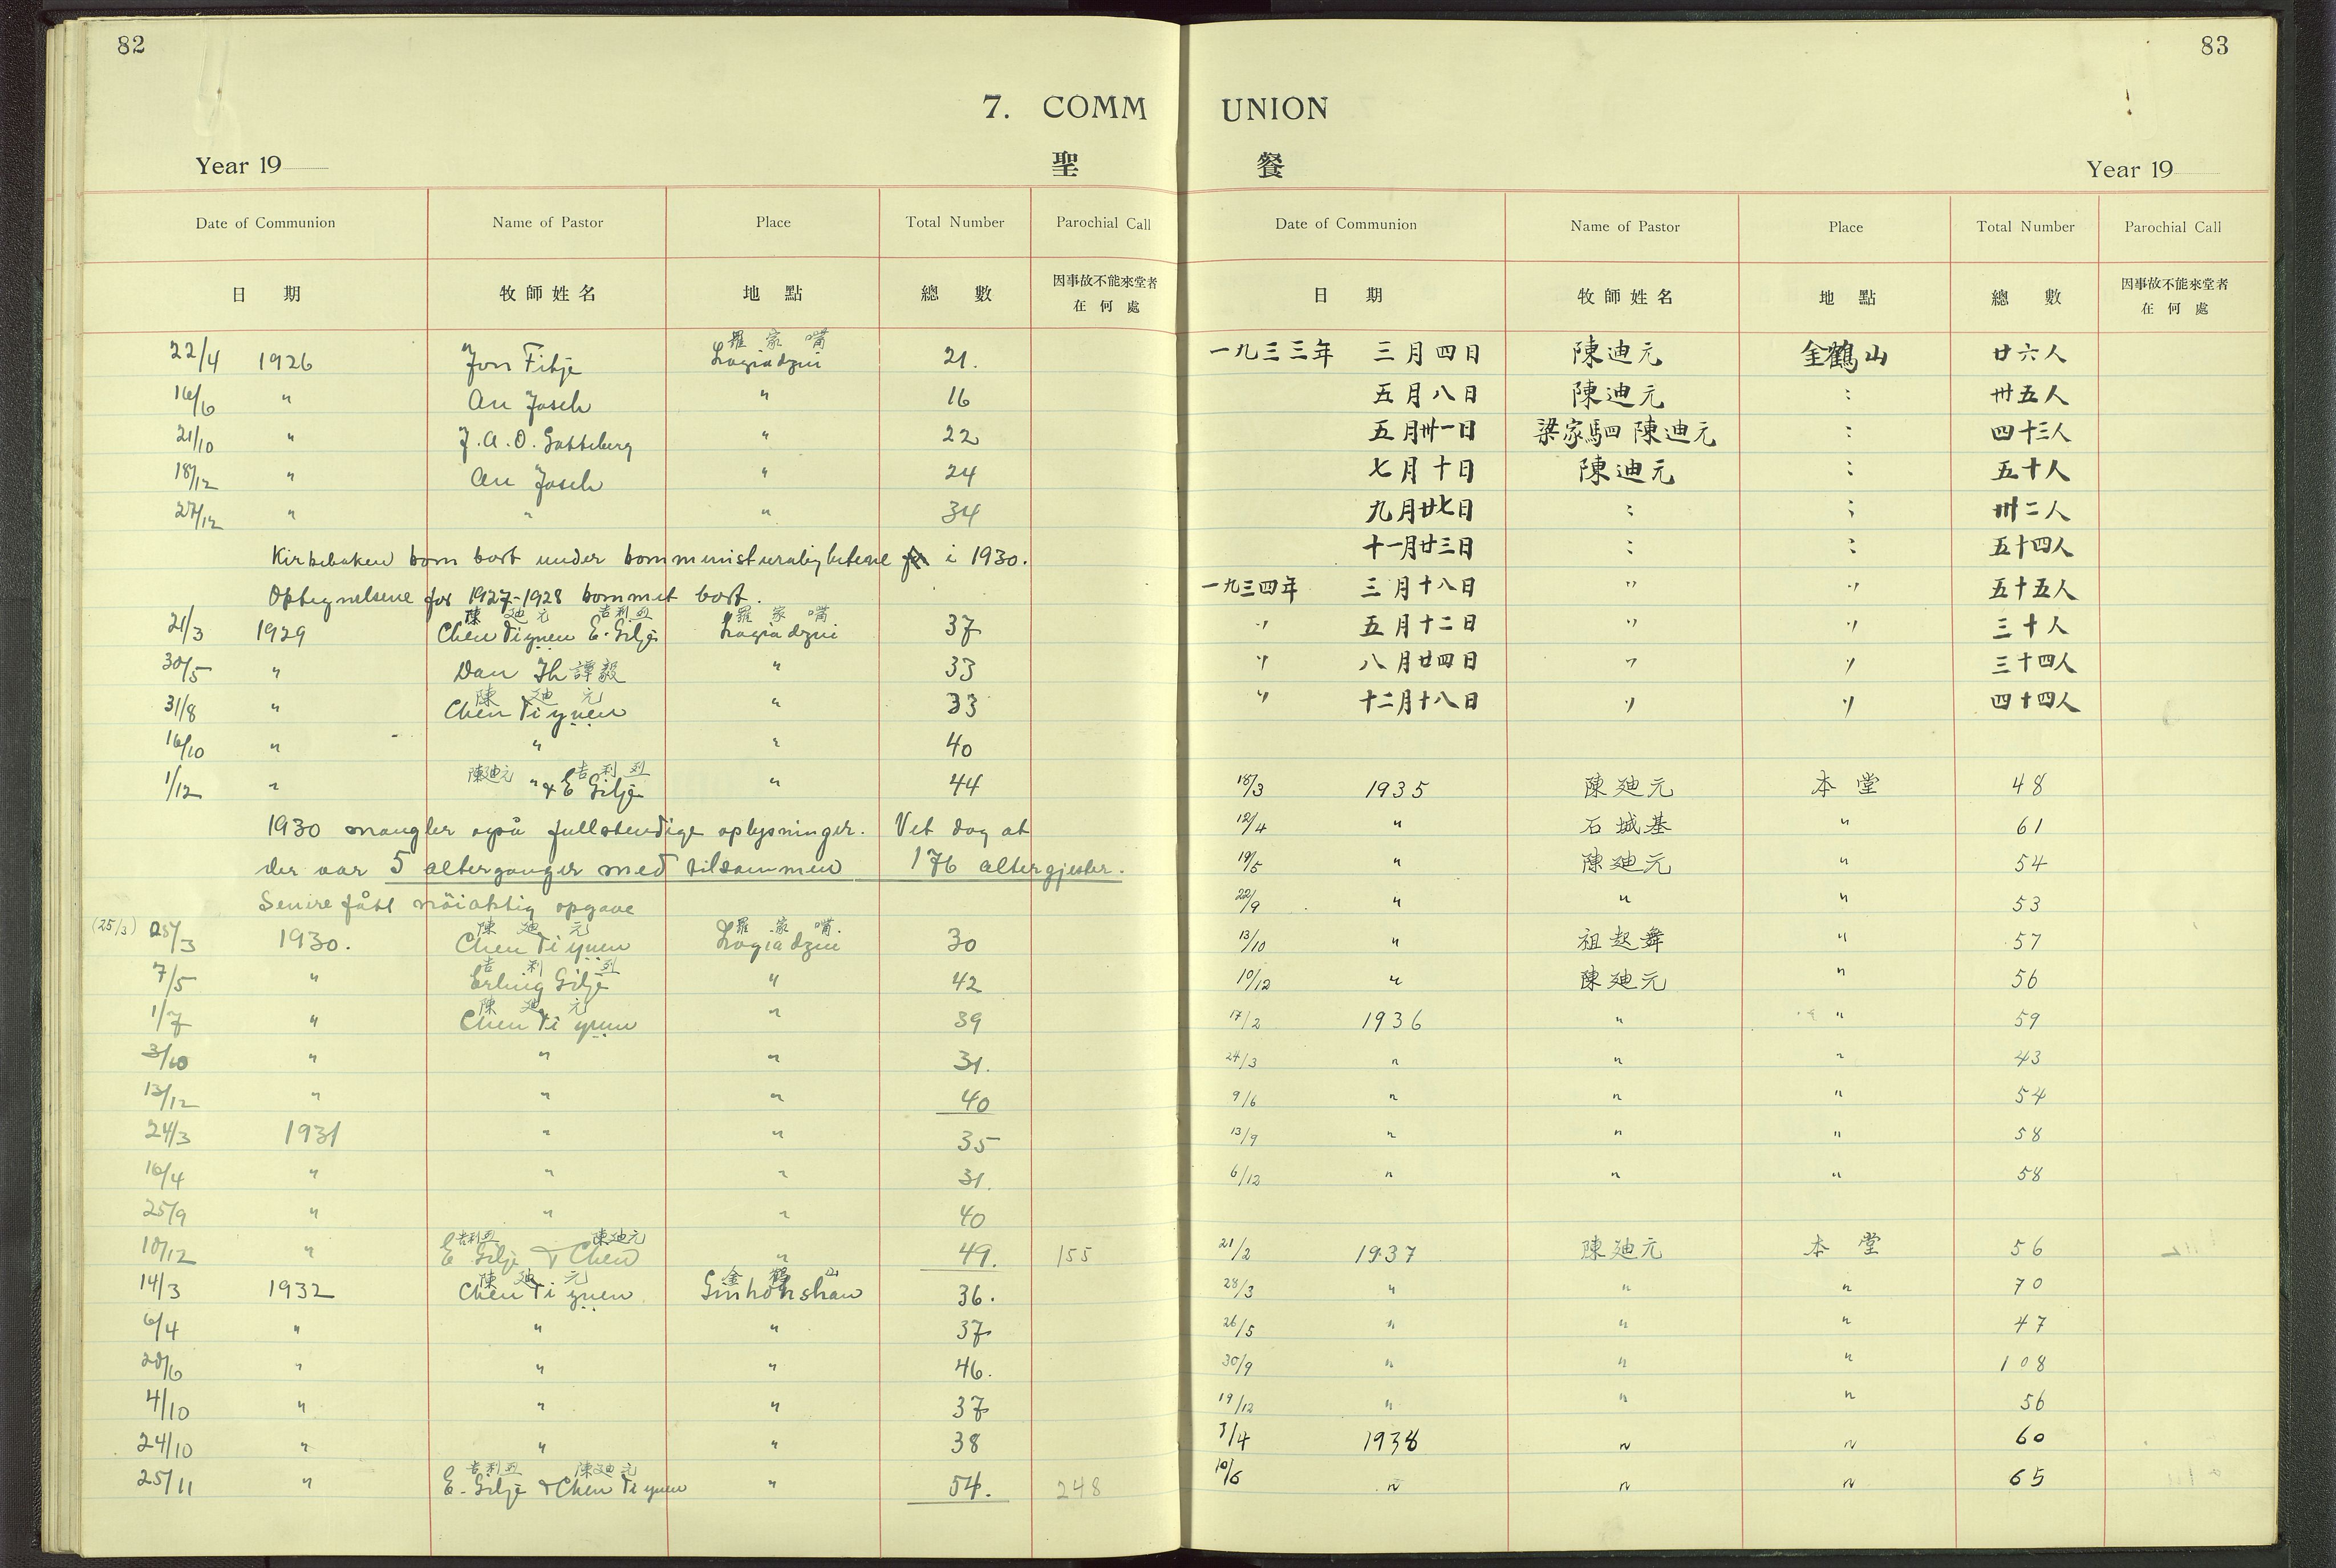 82
7. COMM
Year 19
聖
Date of Communion Name of Pastor Place Total Number Parochial Call
日 期 牧師姓名 地 點 總 數 因事故不能來堂者
在 何 處
羅 家 嘴
22/4 1926 Jon Fitje Logiadzui 21.
16/6 " An Joseh " 16
21/10 " J.A.O. Gotteberg " 22
18/12 " An Joseh " 24
27/12 " " " 34
Kirkeboken kom bort under kommunisturolighetene i 1930.
Optegnelsene for 1927-1928 kommet bort.
陳 廸 元 吉利烈 羅 家 嘴
21/3 1929 Chen Ti yuen E. Gilje Logiadzui 37
30/5 " Dan Ih 譚毅 " 33
陳 廸 元
31/8 " Chen Ti yuen " 33
16/10 " " " 40
陳廸元 吉利烈
1/12 " " & E Gilje " 44
1930 mangler også fullstendige oplysninger. Vet dog at
der var 5 alterganger med tilsammen 176 altergjester.
Senere fått nöiaktig opgave
陳 廸 元 羅 家 嘴.
(25/3) 25/3 1930. Chen Ti yuen Logiadzui 30
吉 利 烈
7/5 " Erling Gilje " 42
陳 廸 元
1/7 " Chen Ti yuen " 39
3/10 " " " 31.
13/12 " " " 40
24/3 1931 " " 35
16/4 " " " 31.
25/9 " " " 40
吉利烈 陳廸元
10/12 " E Gilje & Chen " 49. 155
陳 廸 元 金 鶴 山
14/3 1932 Chen Ti yuen Ginhohshan 36.
6/4 " " " 37
20/6 " " " 46.
4/10 " " " 37
24/10 " " " 38
吉利烈 陳廸元
25/11 " E. Gilje & Chen Ti yuen " 54. 248
83
UNION
餐
Year 19
Date of Communion Name of Pastor Place Total Number Parochial Call
日 期 牧師姓名 地 點 總 數 因事故不能來堂者
在 何 處
一九三三年 三月四日 陳迪元 金鶴山 廿六人
五月八日 陳迪元 : 卅五人
五月卅一日 梁家駟 陳迪元 : 四十三人
七月十日 陳迪元 : 五十人
九月廿七日 : : 卅二人
十一月廿三日 : : 五十四人
一九三四年 三月十八日 " " 五十五人
" 五月十二日 " " 三十人
" 八月廿四日 " " 三十四人
" 十二月十八日 " " 四十四人
18/3 1935 陳廸元 本 堂 48
12/4 " 石城基 " 61
19/5 " 陳廸元 " 54
22/9 " " " 53
13/10 " 祖起舞 " 57
10/12 " 陳廸元 " 56
17/2 1936 " " 59
24/3 " " " 43
9/6 " " " 54
13/9 " " " 58
6/12 " " " 58
21/2 1937 陳廸元 本 堂 56
28/3 " " " 70
26/5 " " " 47
30/9 " " " 108
19/12 " " " 56
3/4 1938 " " 60
10/6 " " " 65